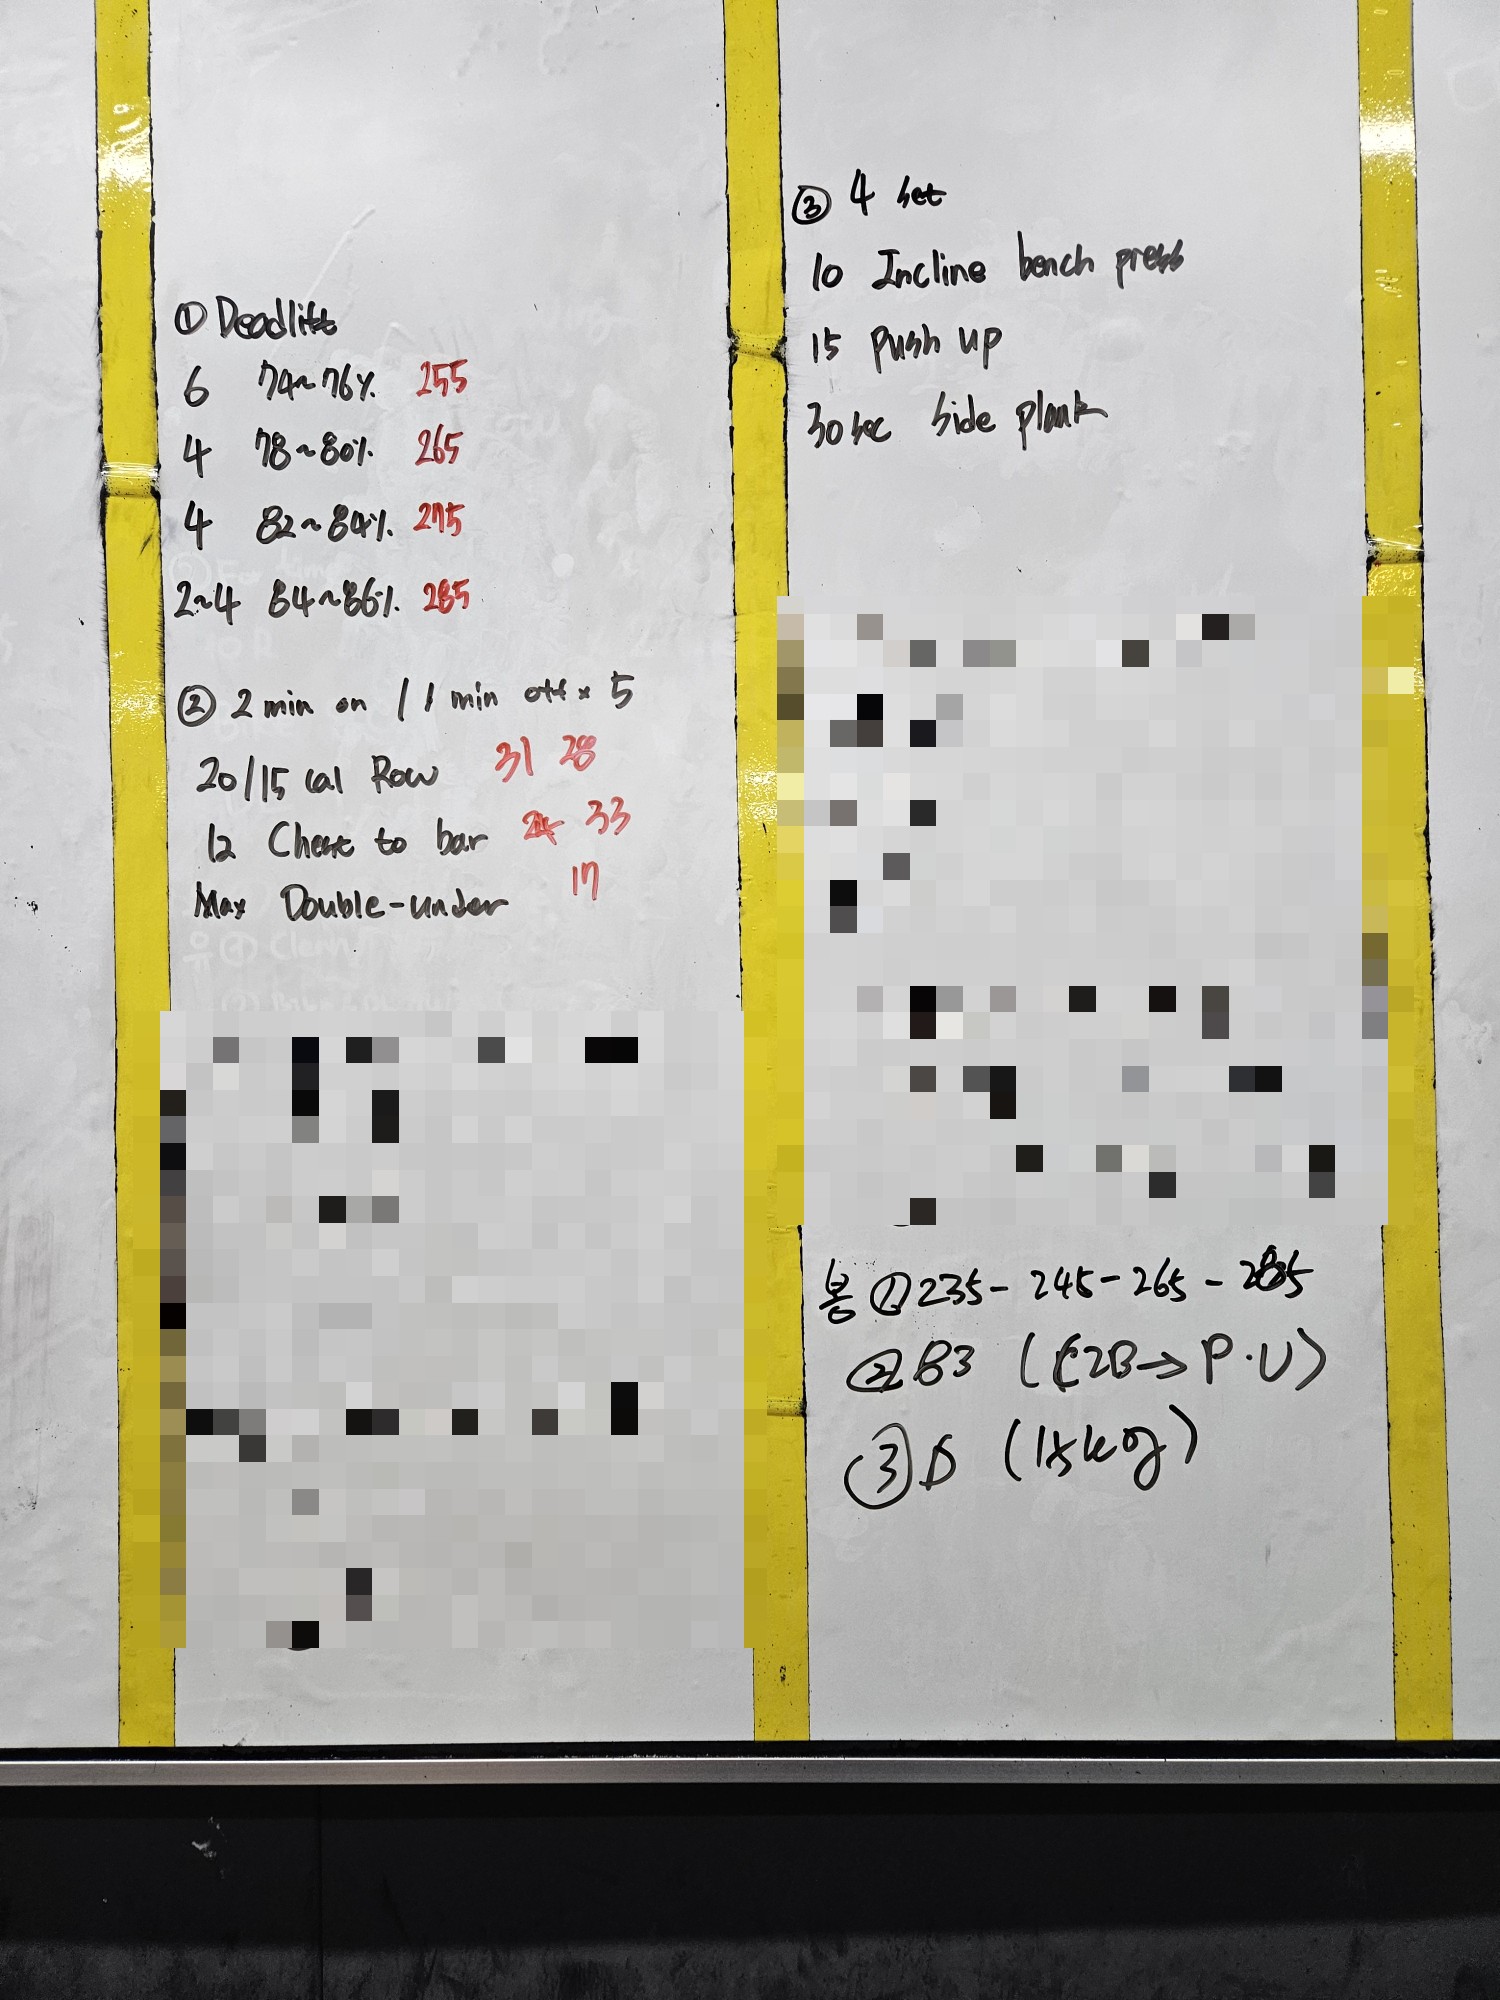 ① Deadlift
6 74~76% 255
4 78~80% 265
4 82~84% 275
2~4 84~86% 285
② 2 min on / 1 min off × 5
20/15 cal Row 31 28
12 Chest to bar 33
Max Double-under 17
③ 4 set
10 Incline bench press
15 push up
30 sec side plank
봉 ① 235 - 245 - 265 - 285
② 83 (C2B → P.U)
③ D (15kg)